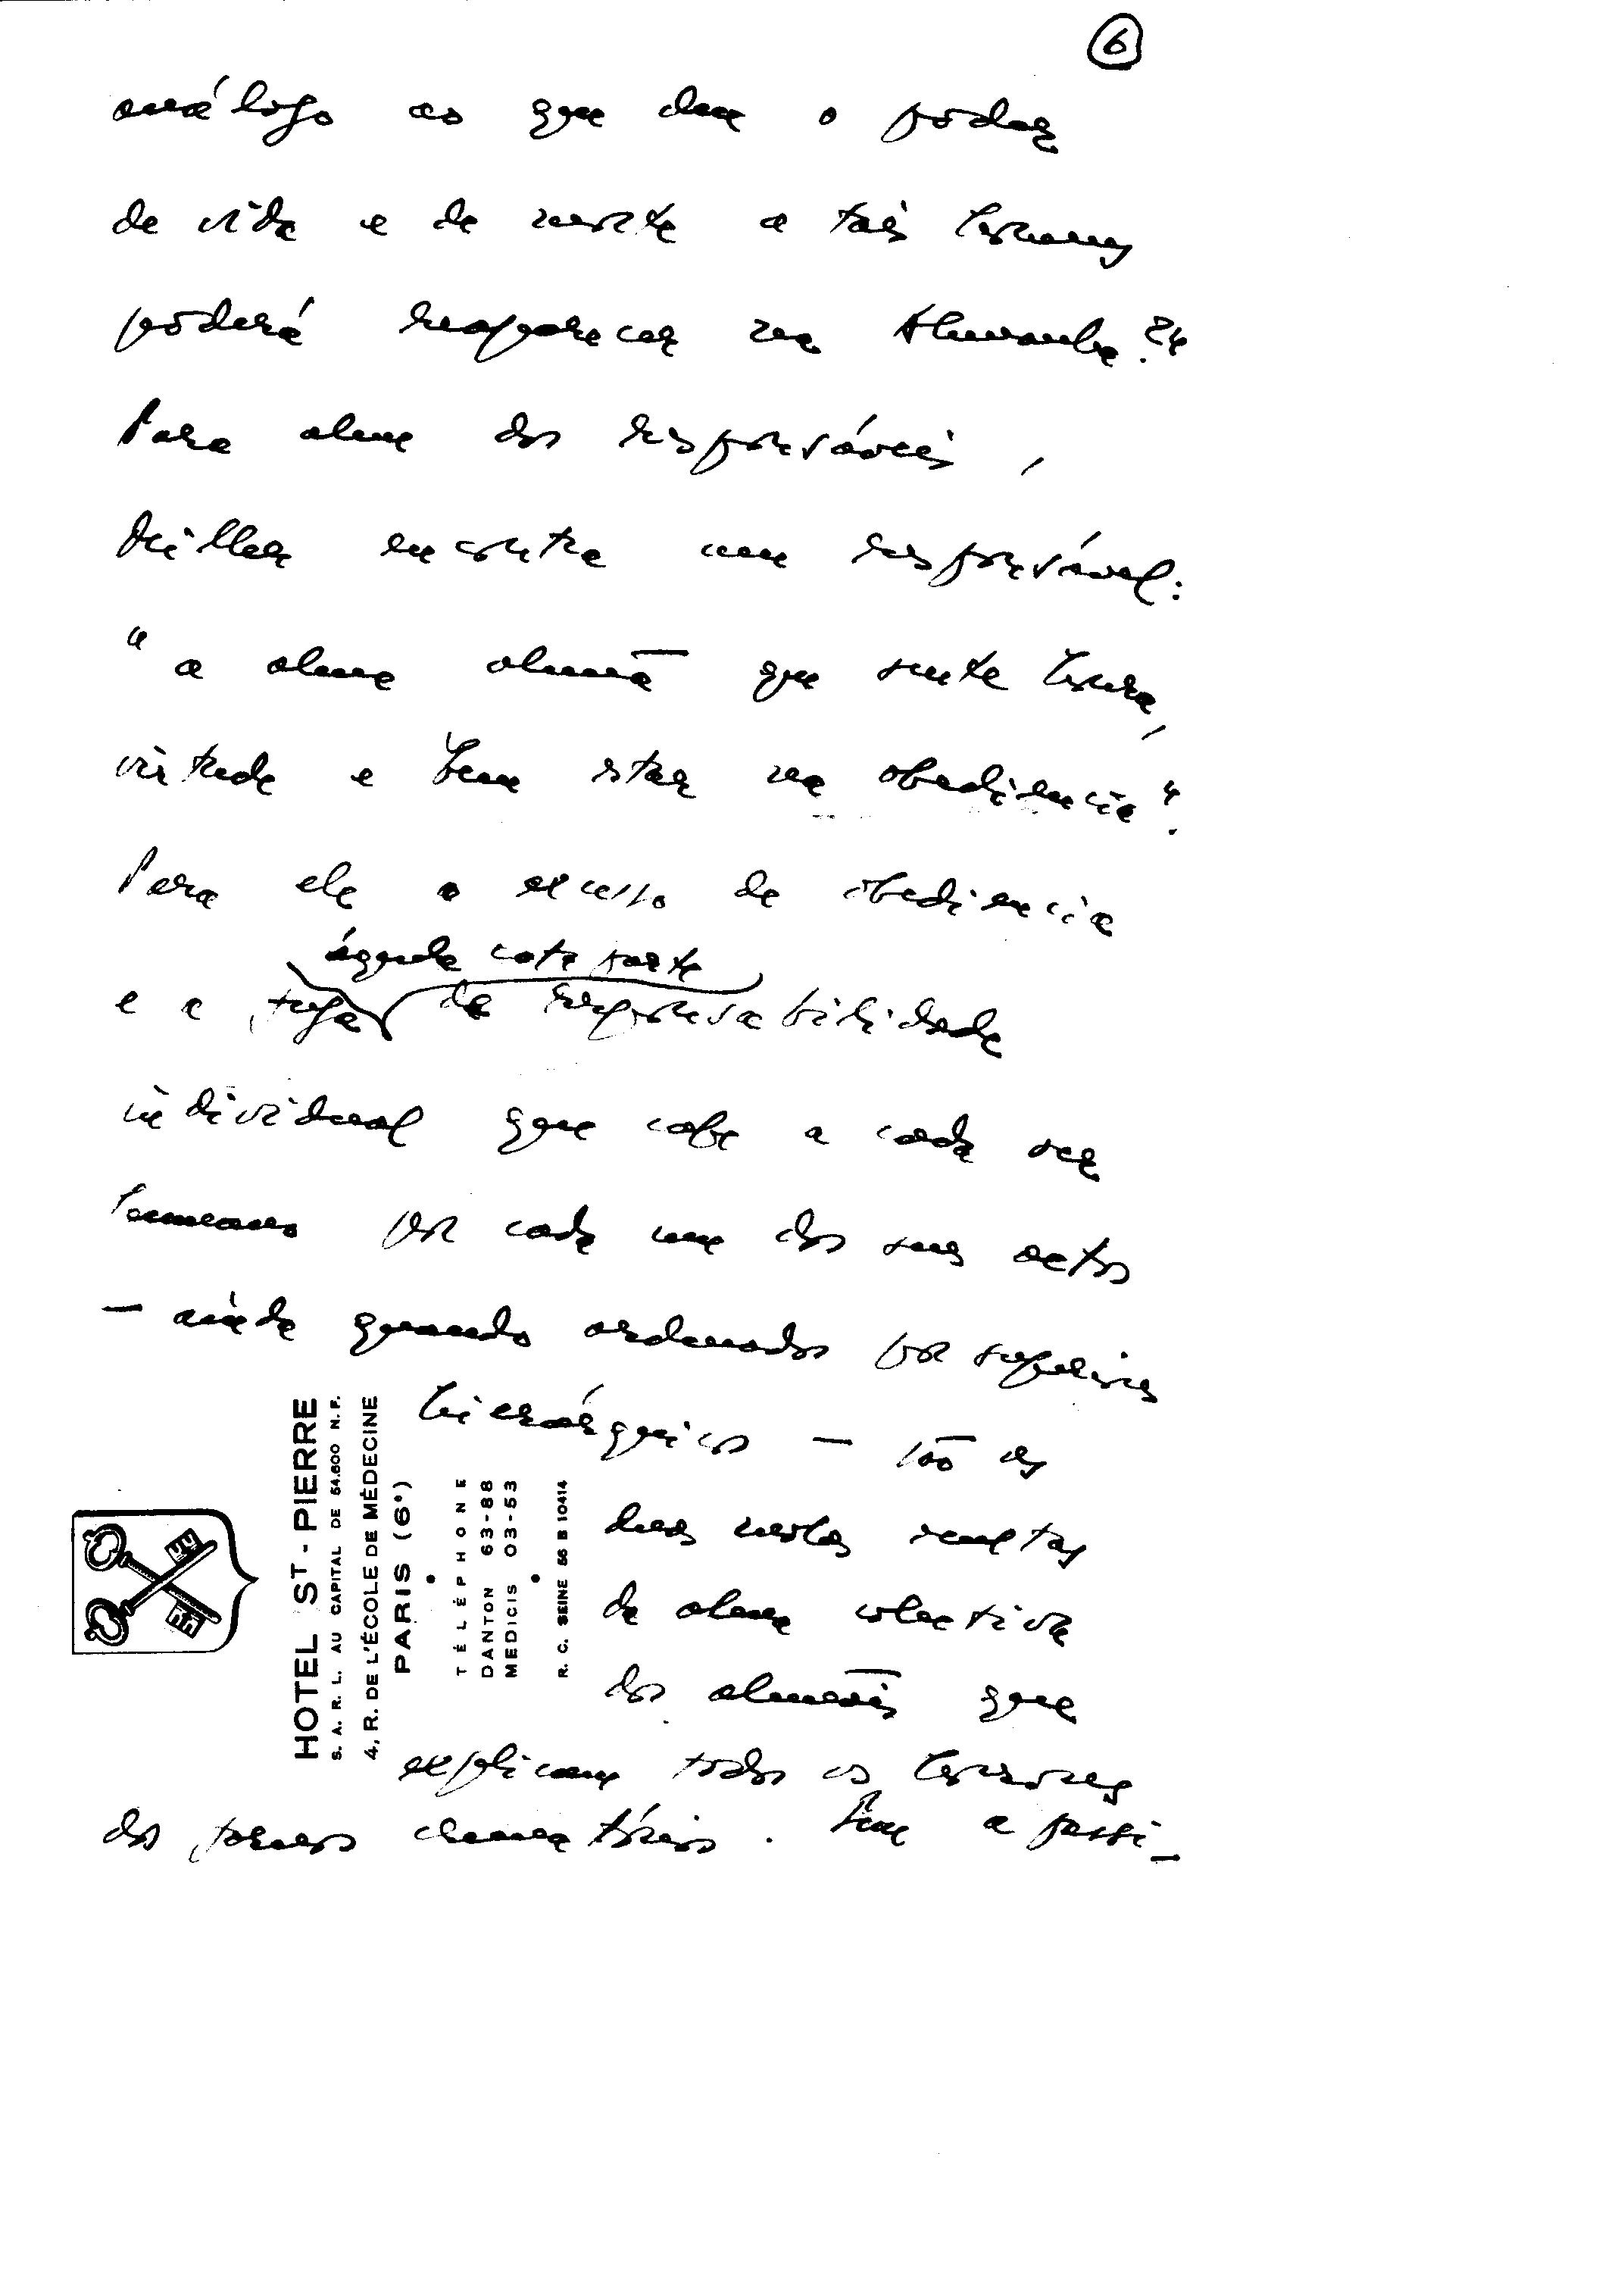 6
análogo ao que deu o poder
de vida e de morte a tais homens
poderá reaparecer na Alemanha?"
Para alem dos responsáveis,
encontra um responsável:
"a alma alemã que sente honra,
virtude e bem estar na obediencia".
Para ele o excesso de obediencia
àquela cota parte
e a fuga de responsabilidade
individual que cabe a cada ser
humano por cada um dos seus actos
— ainda quando ordenados por superiores
hierárquicos — são as
duas molas
da alma colectiva
dos alemães que
explicam todos os horrores
dos fornos crematórios. Sem a passi-
HOTEL ST-PIERRE
S. A. R. L. AU CAPITAL DE 54.600 N. F.
4, R. DE L'ÉCOLE DE MÉDECINE
PARIS (6e)
TÉLÉPHONE
DANTON 63-88
MEDICIS 03-53
R. C. SEINE 56 B 10414